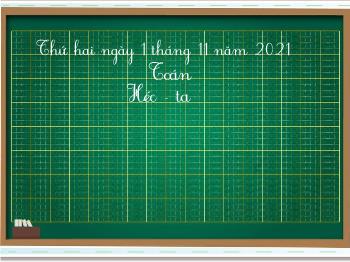 Thứ hai ngày 1 tháng 11 năm 2021
Toán
Héc - ta